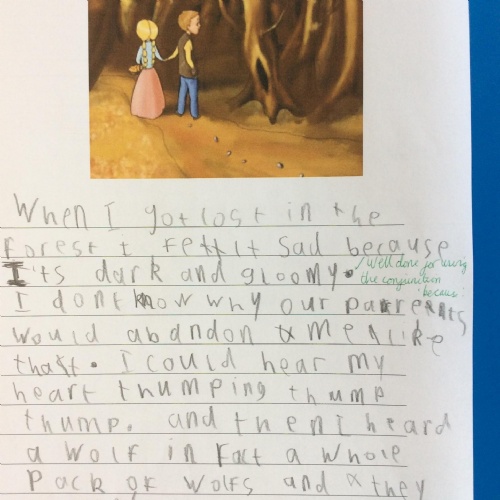 When I got lost in the
forest I feltt sad because
I'ts dark and gloomy.
Well done for using
the conjunction
because
I dont know why our parrents
would abandon me like
that. I could hear my
heart thumping thump
thump. and then I heard
a wolf in fact a whole
pack of wolfs and they